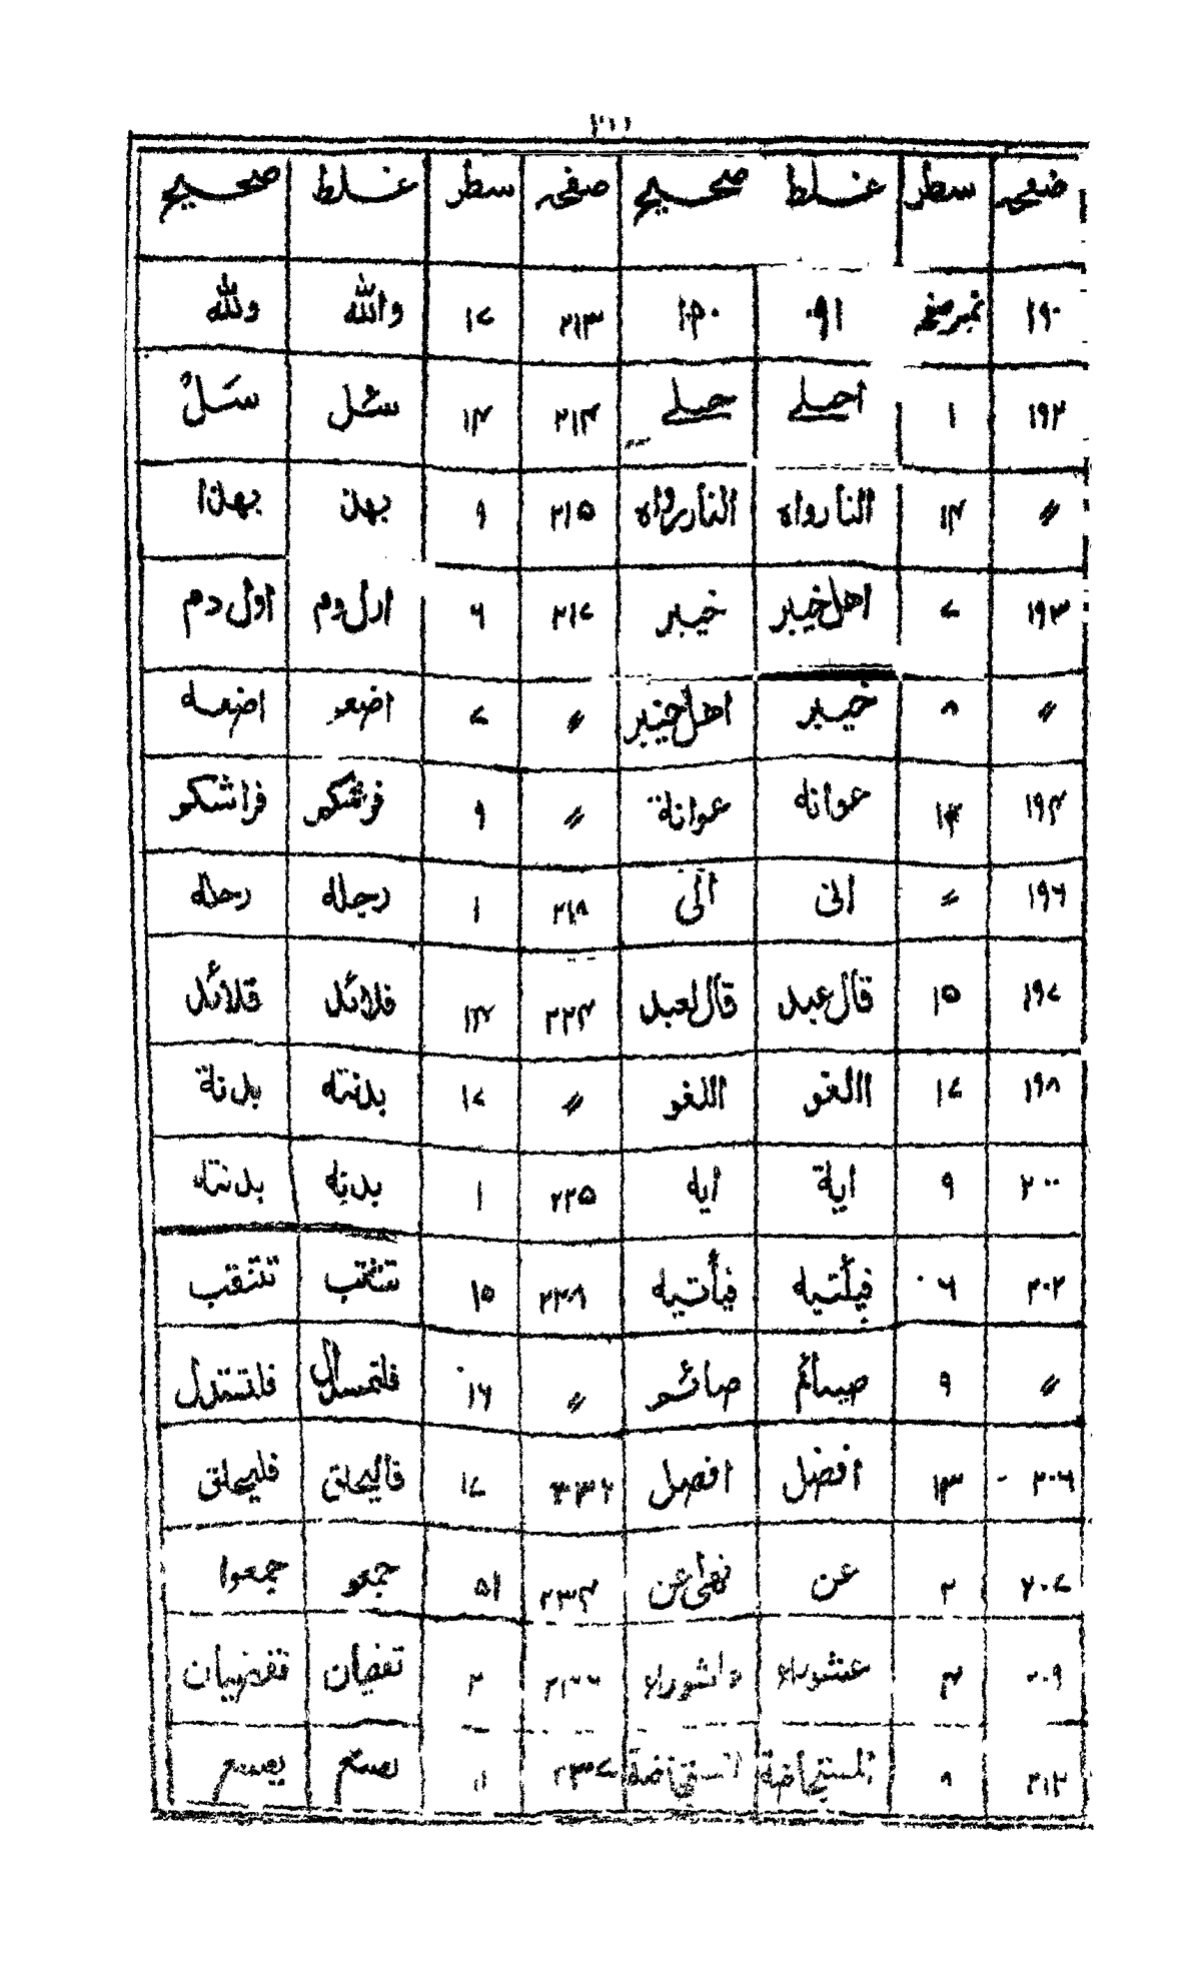 صفحہ سطر غلط صحیح صفحہ سطر غلط صحیح
۱۹۰ نمبرصفحہ ۰۹۱ ۱۹۰ ۲۱۳ ۱۷ واللّٰه وللّٰه
۱۹۲ ۱ احیلے حیلے ۲۱۴ ۱۴ سئل سَلْ
〃 ۱۴ النارواه النار رواه ۲۱۵ ۹ بهذ بهذا
۱۹۳ ۷ اهل خیبر خیبر ۲۱۷ ۶ ارل وم اول دم
〃 ۸ خیبر اهل خیبر 〃 ۷ اضعو اضعه
۱۹۴ ۱۴ عوانه عوانة 〃 ۹ فرشکم فراشکو
۱۹۶ 〃 انی الی ۲۱۸ ۱ رجله رحله
۱۹۷ ۱۵ قال عبد قال لعبد ۲۲۴ ۱۴ فلائد قلائد
۱۹۸ ۱۷ االغو اللغو 〃 ۱۷ بدنته بدنة
۲۰۰ ۹ ایة ایه ۲۲۵ ۱ بدنه بدنته
۲۰۲ ۶ فیلتیه فیأتیه ۲۲۸ ۱۵ تنتقب
〃 ۹ صیائم صائم 〃 ۱۶ فلتسدل
۲۰۶ ۱۳ افضل افصل ۲۳۲ ۱۷ فالیحلق فلیحلق
۲۰۷ ۲ عن نهی عن ۲۳۴ ۵۱ جمعو جمعوا
۲۰۹ ۳ عشوراء عاشوراء ۲ تفضیان
۲۱۲ ۹ المستحاضة ۲۳۷ ۱۱ یصنع